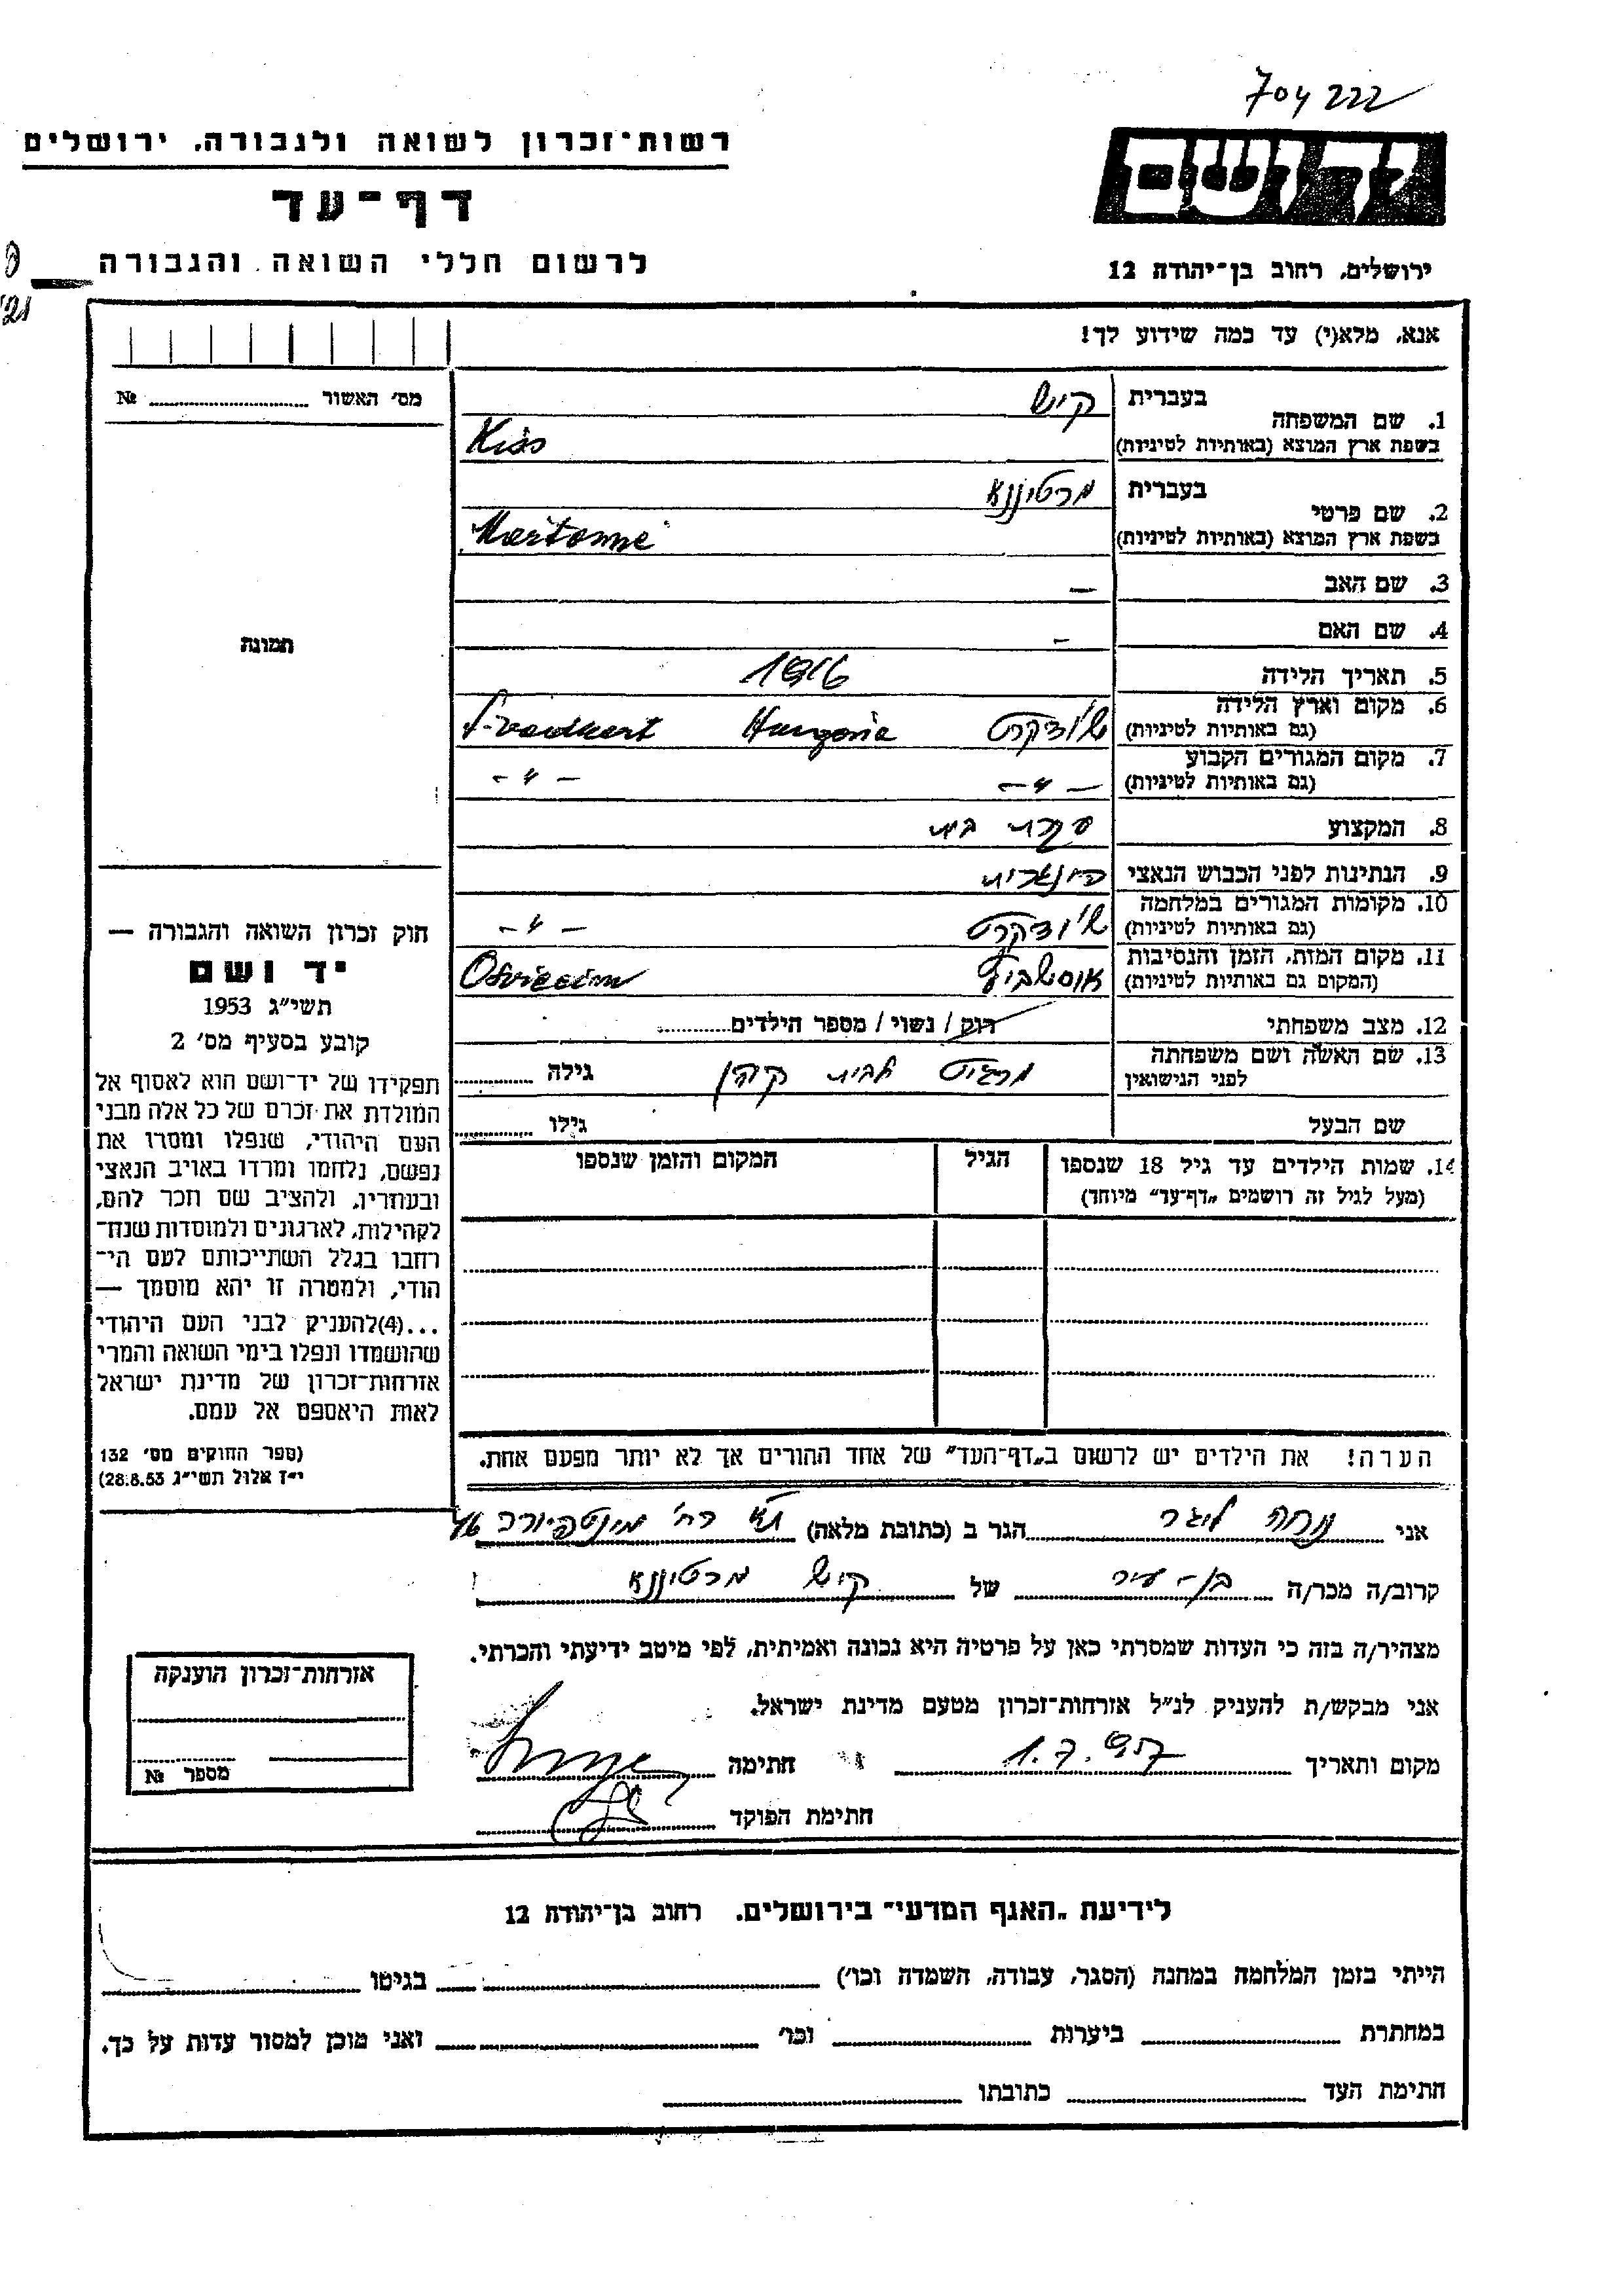 704222
רשות־זכרון לשואה ולגבורה, ירושלים
דף־עד
לרשום חללי השואה והגבורה
ידושם
ירושלים, רחוב בן־יהודה 12
אנא, מלא(י) עד כמה שידוע לך!
מס׳ האשור № 
1. שם המשפחה בעברית קיש
בשפת ארץ המוצא (באותיות לטיניות) Kiss
2. שם פרטי בעברית מרטוננא
בשפת ארץ המוצא (באותיות לטיניות) Martonne
3. שם האב –
4. שם האם –
5. תאריך הלידה
6. מקום וארץ הלידה
(גם באותיות לטיניות) Hungaria
7. מקום המגורים הקבוע
(גם באותיות לטיניות) –"– –"–
8. המקצוע עקרת בית
9. הנתינות לפני הכבוש הנאצי הונגרית
10. מקומות המגורים במלחמה
(גם באותיות לטיניות) –"–
11. מקום המות, הזמן והנסיבות
(המקום גם באותיות לטיניות) אושביץ Osviecim
12. מצב משפחתי רווק / נשוי / מספר הילדים
13. שם האשה ושם משפחתה
לפני הנישואין מרגיט לבית קוהן גילה
שם הבעל גילו
14. שמות הילדים עד גיל 18 שנספו הגיל המקום והזמן שנספו
(מעל לגיל זה רושמים „דף־עד״ מיוחד)
הערה! את הילדים יש לרשום ב„דף־העד״ של אחד ההורים אך לא יותר מפעם אחת.
תמונה
חוק זכרון השואה והגבורה —
יד ושם
תשי״ג 1953
קובע בסעיף מס׳ 2
תפקידו של יד־ושם הוא לאסוף אל
המולדת את זכרם של כל אלה מבני
העם היהודי, שנפלו ומסרו את
נפשם, נלחמו ומרדו באויב הנאצי
ובעוזריו, ולהציב שם וזכר להם,
לקהילות, לארגונים ולמוסדות שנח־
רבו בגלל השתייכותם לעם הי־
הודי, ולמטרה זו יהא מוסמך —
...(4)להעניק לבני העם היהודי
שהושמדו ונפלו בימי השואה והמרי
אזרחות־זכרון של מדינת ישראל
לאות היאספם אל עמם.
(ספר החוקים מס׳ 132
י״ז אלול תשי״ג 28.8.53)
אני הגר ב (כתובת מלאה)
קרוב/ה מכר/ה בן-עיר של קיש מרטוננא
מצהיר/ה בזה כי העדות שמסרתי כאן על פרטיה היא נכונה ואמיתית, לפי מיטב ידיעתי והכרתי.
אני מבקש/ת להעניק לנ״ל אזרחות־זכרון מטעם מדינת ישראל.
מקום ותאריך 1.7.957 חתימה
חתימת הפוקד
אזרחות־זכרון הוענקה
מספר №
לידיעת „האגף המדעי״ בירושלים, רחוב בן־יהודה 12
הייתי בזמן המלחמה במחנה (הסגר, עבודה, השמדה וכו׳) בגיטו
במחתרת ביערות וכו׳ ואני מוכן למסור עדות על כך.
חתימת העד כתובתו